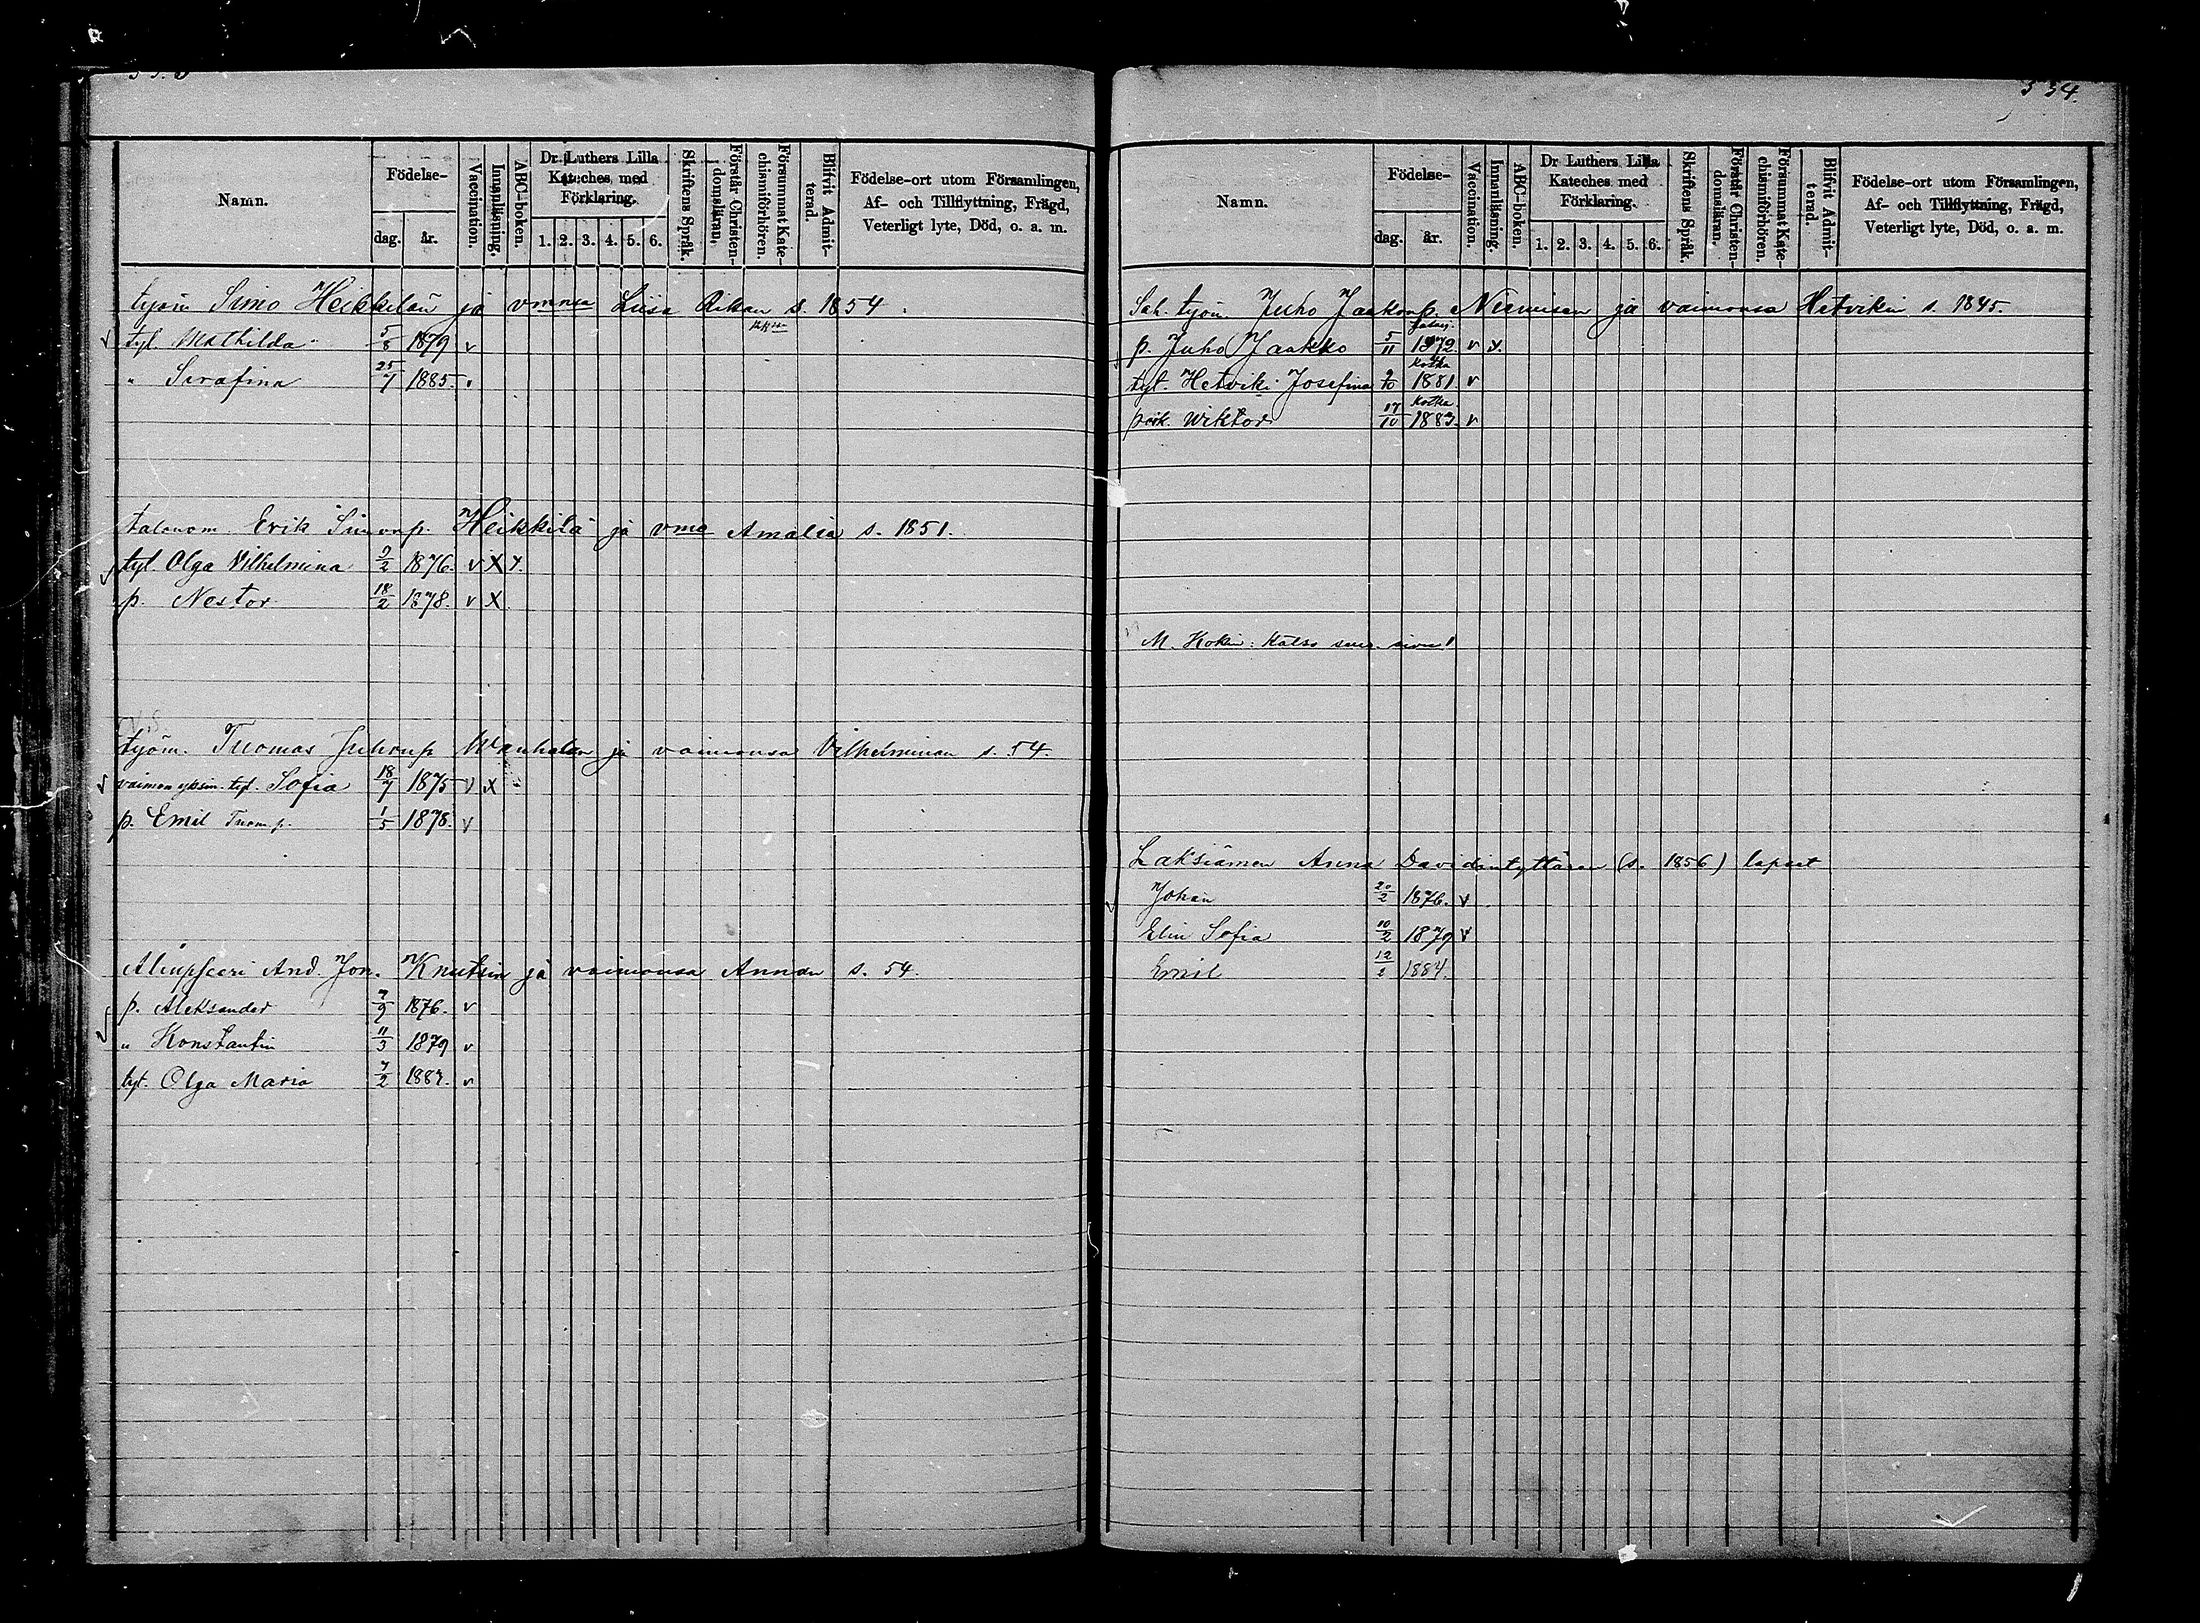 Namn.
Födelse-
dag. år.
Vaccination.
Innanläsning.
ABC-boken.
Dr Luthers Lilla
Kateches med
Förklaring.
1. 2. 3. 4. 5. 6.
Skriftens Språk.
Förstår Christen-
domsläran.
Försummat Kate-
chismiförhören.
Blifvit Admit-
terad.
Födelse-ort utom Församlingen,
Af- och Tillflyttning, Frägd,
Veterligt lyte, Död, o. a. m.
työm. Simo Heikkilän ja vmnsa Liisa s. 1854
tyt. Mathilda 5/8 1879 v
" Serafina 25/7 1885
Erik Simonp. Heikkilä ja vmo Amalia s. 1851.
tyt. Olga Vilhelmina 9/2 1876. v X
p. Nestor 18/2 1878. v X
työm. Thomas Juhonp ja vaimonsa Vilhelminan s. 54.
tyt. Sofia 18/7 1875 v X
p. Emil Tuom p. 1/5 1878. v
And. Joh. Knutsin ja vaimonsa Annan s. 54.
p. Aleksander 7/9 1876. v
" Konstantin 11/3 1879 v
tyt. Olga Maria 7/2 1887. v
334.
Namn.
Födelse-
dag. år.
Vaccination.
Innanläsning.
ABC-boken.
Dr Luthers Lilla
Kateches med
Förklaring.
1. 2. 3. 4. 5. 6.
Skriftens Språk.
Förstår Christen-
domsläran.
Försummat Kate-
chismiförhören.
Blifvit Admit-
terad.
Födelse-ort utom Församlingen,
Af- och Tillflyttning, Frägd,
Veterligt lyte, Död, o. a. m.
Sah. työm. Juho Jaakonp. Niemisen ja vaimonsa Hetvikin s. 1845.
p. Juho Jaakko 5/11 1872. v x.
Kotka
tyt. Hetviki Josefina 9/10 1881 v
Kotka
poik. Wiktor 17/10 1883. v
M. Kokin: Katso seur. sivu!
Laksiämen Anna Davidintyttären (s. 1856) lapset
Johan 20/2 1876. v
Elin Sofia 10/2 1879 v
Emil 12/2 1884.